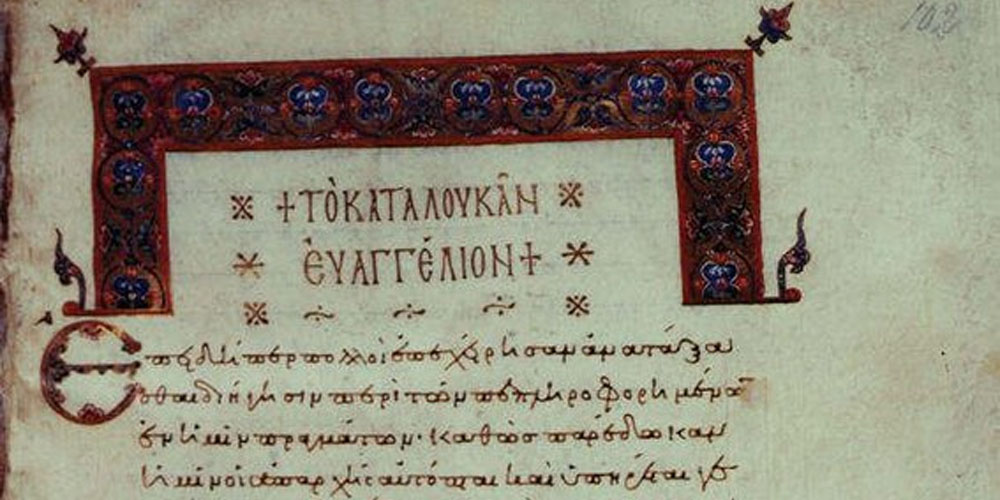 102
+ ΤὸΚΑΤΑΛΟΥΚᾶΝ
ἐΥΑΓΓέΛΙΟΝ +
Ἐπειδήπερ πολλοὶ ἐπεχείρησαν ἀνατάξα
σθαι διήγησιν περὶ τῶν πεπληροφορημένω
ἐν ἡμῖν πραγμάτων· καθὼς παρέδοσαν
ἡμῖν οἱ ἀπαρχῆς αὐτόπται καὶ ὑπηρέται γε